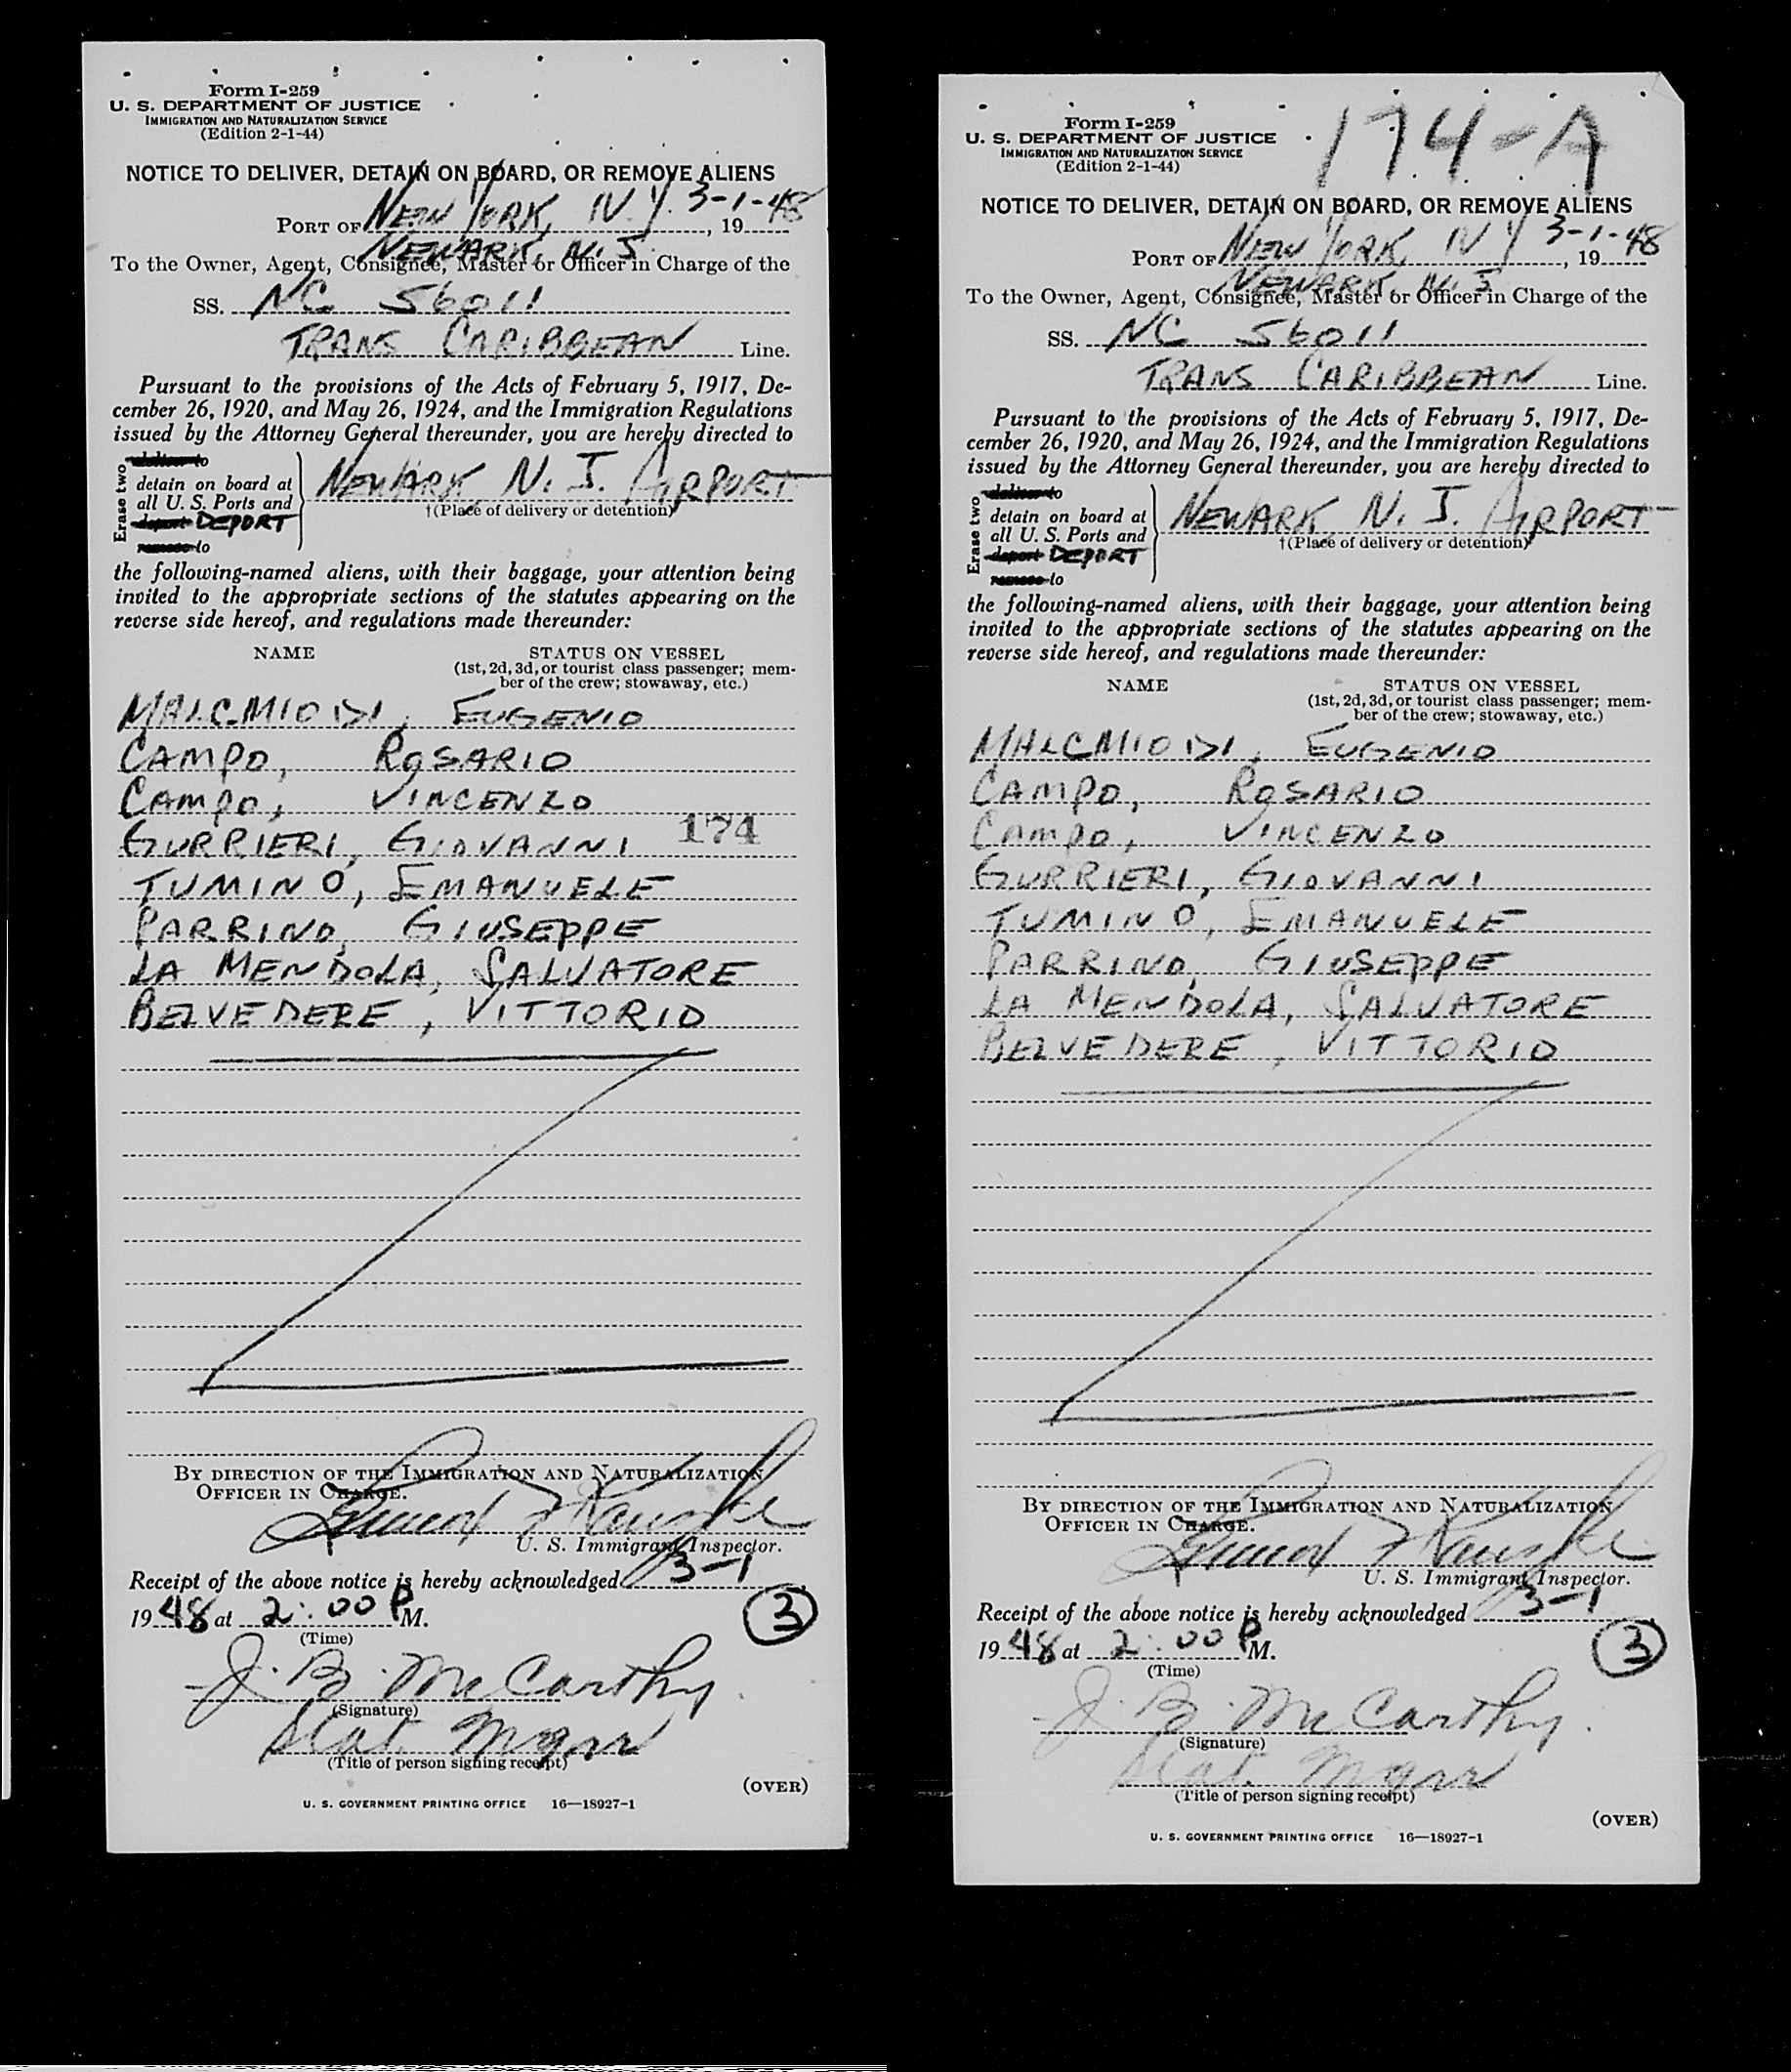 Form I-259
U. S. DEPARTMENT OF JUSTICE
IMMIGRATION AND NATURALIZATION SERVICE
(Edition 2-1-44)
NOTICE TO DELIVER, DETAIN ON BOARD, OR REMOVE ALIENS
PORT OF NEW YORK, N.Y. 3-1-48, 19
NEWARK, N. J.
To the Owner, Agent, Consignee, Master or Officer in Charge of the
SS. NC 56011
TRANS CARIBBEAN Line.
Pursuant to the provisions of the Acts of February 5, 1917, De-
cember 26, 1920, and May 26, 1924, and the Immigration Regulations
issued by the Attorney General thereunder, you are hereby directed to
Erase two
deliver to
detain on board at
all U. S. Ports and
deport DEPORT
remove to
NEWARK N. J. AIRPORT
†(Place of delivery or detention)
the following-named aliens, with their baggage, your attention being
invited to the appropriate sections of the statutes appearing on the
reverse side hereof, and regulations made thereunder:
NAME STATUS ON VESSEL
(1st, 2d, 3d, or tourist class passenger; mem-
ber of the crew; stowaway, etc.)
MALCMIODI, EUGENIO
CAMPO, ROSARIO
CAMPO, VINCENZO
174
GURRIERI, GIOVANNI
TUMINO, EMANUELE
PARRINO, GIUSEPPE
LA MENDOLA, SALVATORE
BELVEDERE, VITTORIO
BY DIRECTION OF THE IMMIGRATION AND NATURALIZATION
OFFICER IN CHARGE.
U. S. Immigrant Inspector.
Receipt of the above notice is hereby acknowledged 3-1
19 48 at 2:00 P M.
(Time)
3
J. B. McCarthy
(Signature)
Stat. Mgr
(Title of person signing receipt)
(OVER)
U. S. GOVERNMENT PRINTING OFFICE 16—18927-1
174-A
Form I-259
U. S. DEPARTMENT OF JUSTICE
IMMIGRATION AND NATURALIZATION SERVICE
(Edition 2-1-44)
NOTICE TO DELIVER, DETAIN ON BOARD, OR REMOVE ALIENS
PORT OF NEW YORK, N Y 3-1-48, 19
NEWARK, N. J
To the Owner, Agent, Consignee, Master or Officer in Charge of the
SS. NC 56011
TRANS CARIBBEAN Line.
Pursuant to the provisions of the Acts of February 5, 1917, De-
cember 26, 1920, and May 26, 1924, and the Immigration Regulations
issued by the Attorney General thereunder, you are hereby directed to
Erase two
deliver to
detain on board at
all U. S. Ports and
deport DEPORT
remove to
NEWARK N. J. AIRPORT
†(Place of delivery or detention)
the following-named aliens, with their baggage, your attention being
invited to the appropriate sections of the statutes appearing on the
reverse side hereof, and regulations made thereunder:
NAME STATUS ON VESSEL
(1st, 2d, 3d, or tourist class passenger; mem-
ber of the crew; stowaway, etc.)
MALCMIODI, EUGENIO
CAMPO, ROSARIO
CAMPO, VINCENZO
GURRIERI, GIOVANNI
TUMINO, EMANUELE
PARRINO, GIUSEPPE
LA MENDOLA, SALVATORE
BELVEDERE, VITTORIO
BY DIRECTION OF THE IMMIGRATION AND NATURALIZATION
OFFICER IN CHARGE.
U. S. Immigrant Inspector.
Receipt of the above notice is hereby acknowledged 3-1
19 48 at 2:00 P M.
(Time)
3
J. B. McCarthy
(Signature)
Stat. Mgr
(Title of person signing receipt)
(OVER)
U. S. GOVERNMENT PRINTING OFFICE 16—18927-1